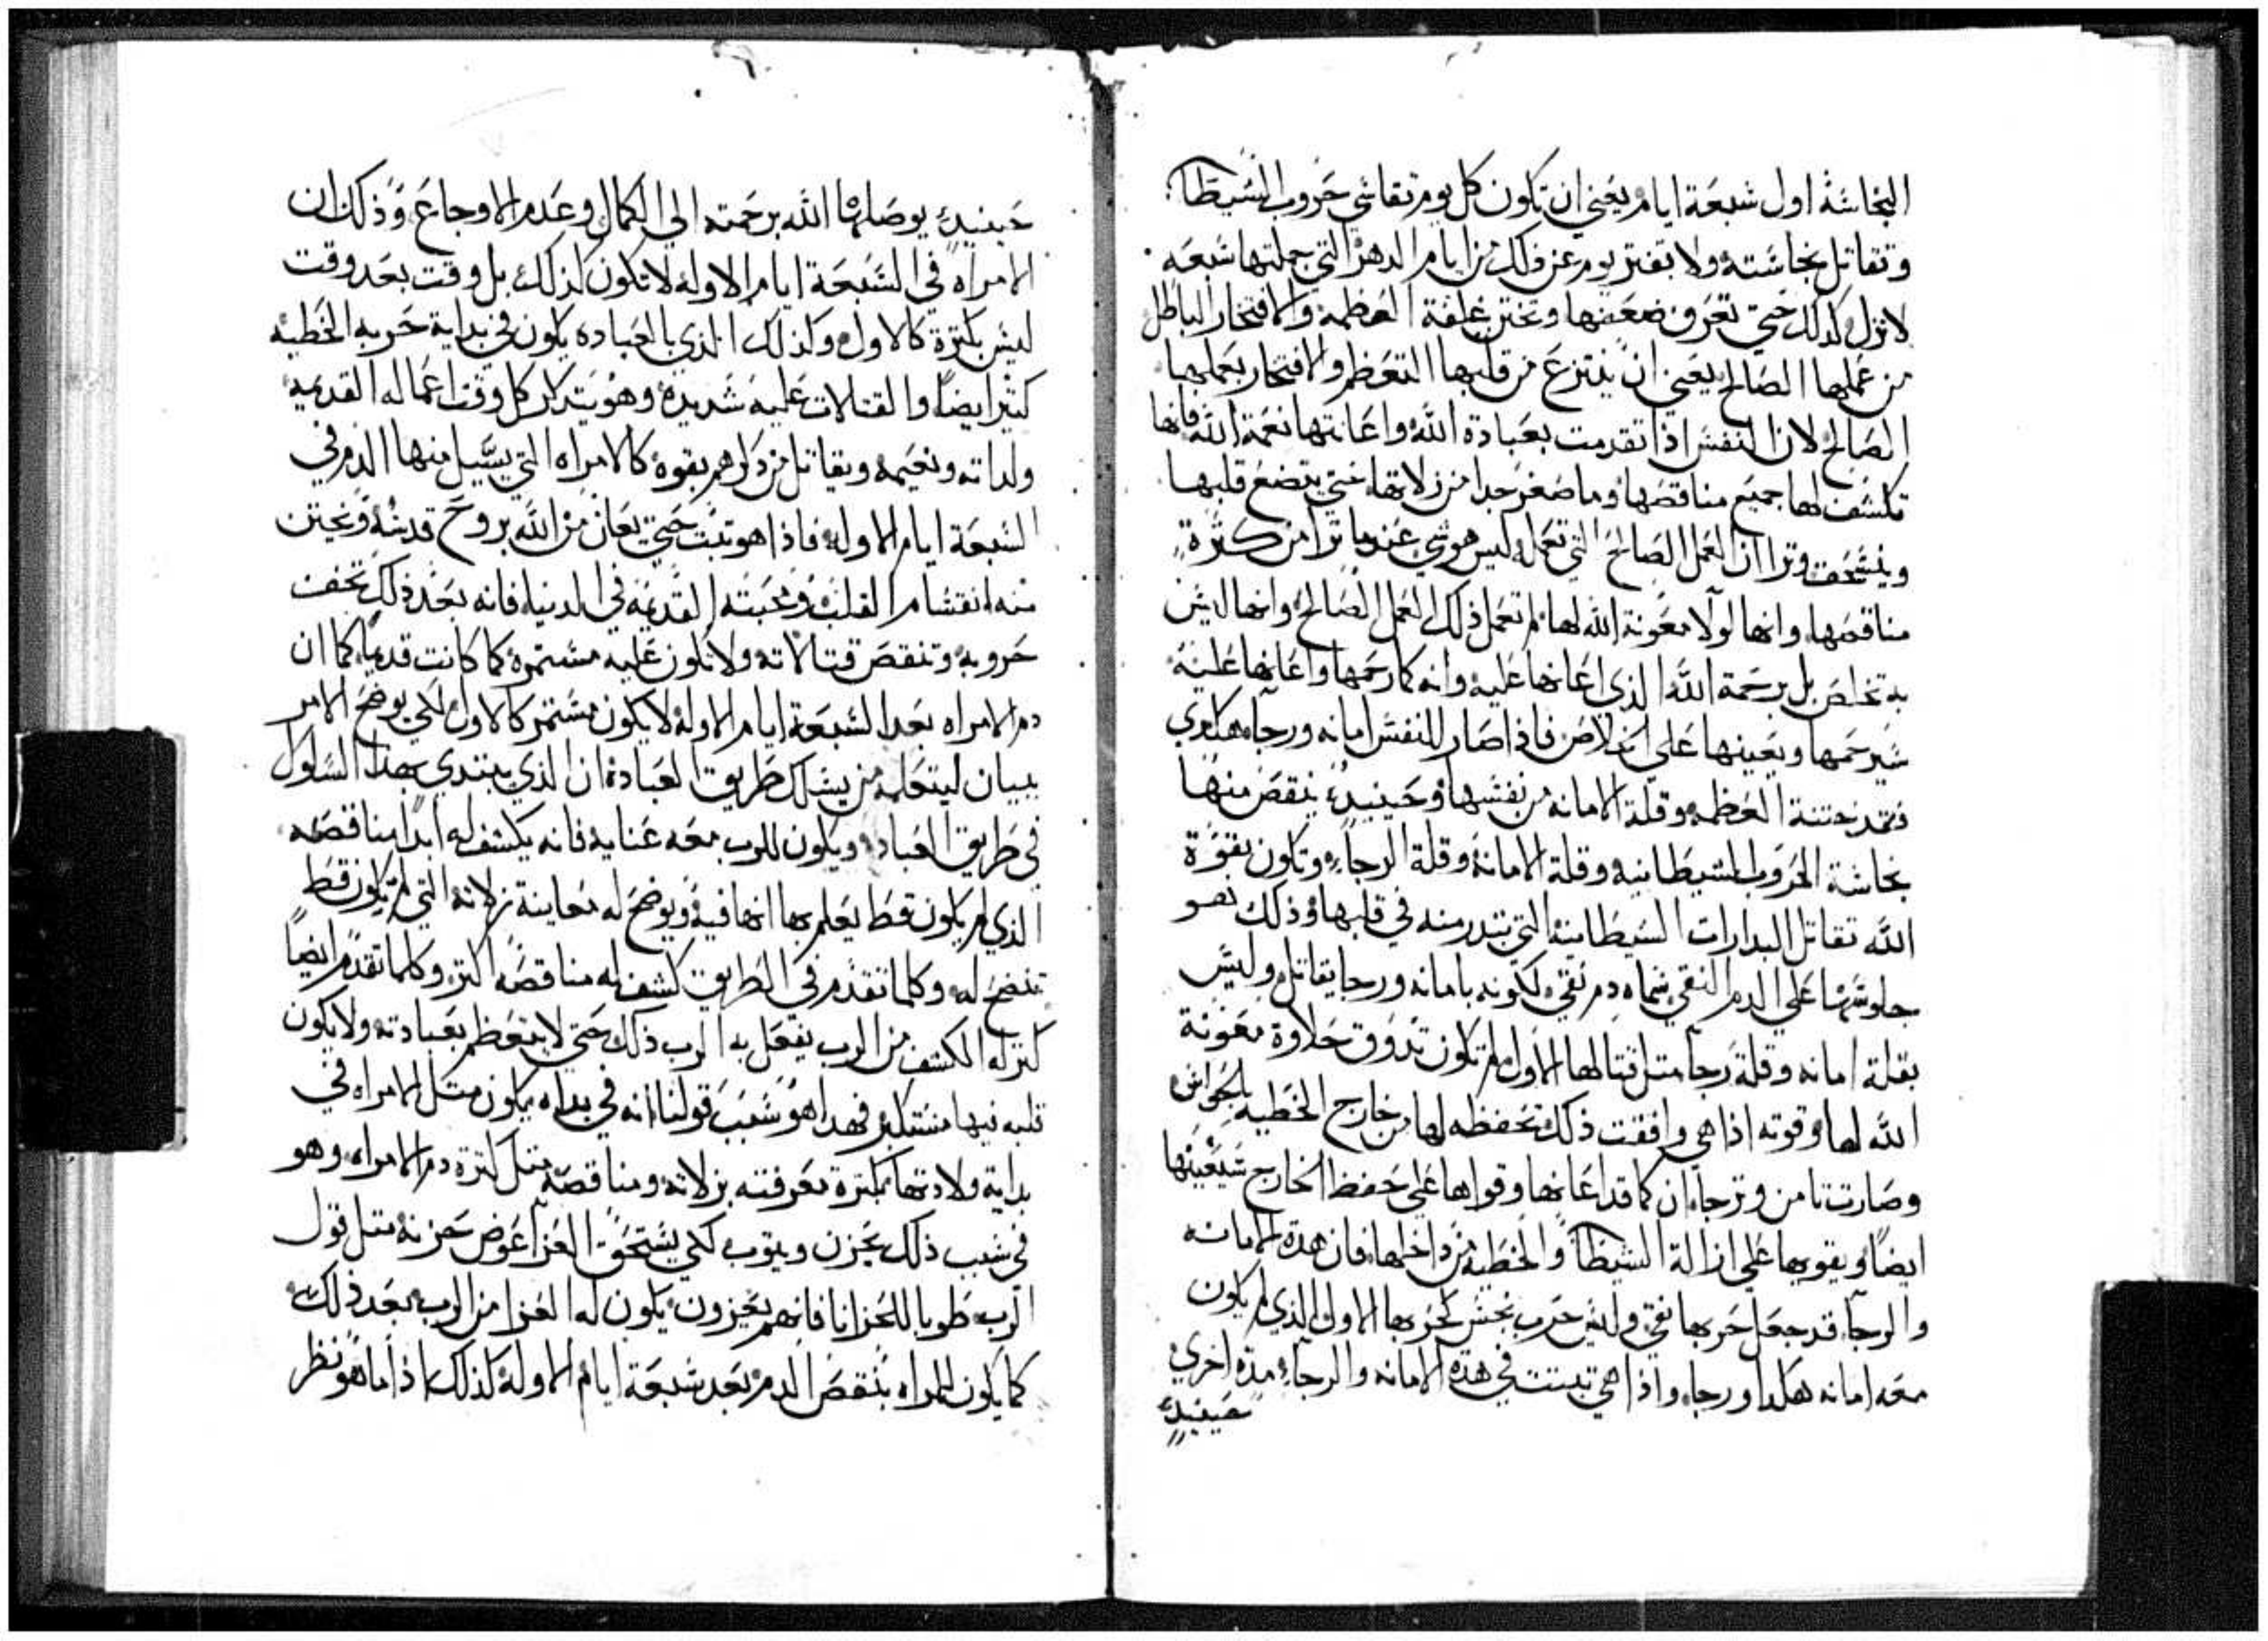 النجاسة اول سبعة ايام يعني ان تكون كل يوم تقاسي حروب الشيطان
وتقاتل نجاسته ولا تفتر يوم عن ذلك من ايام الدهر التي جملتها سبعه
لا تزل كذلك حتي تعرف ضعفها وتختن غلفة العظمة والافتخار الباطل
من عملها الصالح يعني ان ينتزع من قلبها التعظم والافتخار بعملها
الصالح لان النفس اذا تقدمت بعبادة الله واعانتها نعمة الله فانها
تكشف لها جميع مناقصها وما صغر جدا من زلاتها حتي يتضع قلبها
وينسحق وترا ان العمل الصالح التي تعمله ليس هو شي عندما ترا من كثرة
مناقصها وانها لولا معونة الله لها لم تعمل ذلك العمل الصالح وانها ليس
به تخلص بل برحمة الله الذي اعانها عليه وانه كما رحمها واعانها عليه
سيرحمها ويعينها علي الخلاص فاذا صار للنفس امانه ورجا هكدي
فقد ختنة العظمه وقلة الامانه من نفسها وحينيد ينقص منها
نجاسة الحروب الشيطانيه وقلة الامانة وقلة الرجاء وتكون بقوة
الله تقاتل البدارات الشيطانية التي تبتدر منه في قلبها وذلك هو
جلوسها علي الدم النقي سماه دم نقي لكونه بامانه ورجا يقاتل وليس
بقلة امانه وقلة رجا مثل قتالها الاول لم تكون تدوق حلاوة معونة
الله لها وقوته اذا هي وافقت ذلك تحفظه لها من خارج الخطيه بالحواس
وصارت تامن وترجا ان كما قد اعانها وقواها علي حفظ الخارج سيعينها
ايضا ويقويها علي ازالة الشيطان والخطيه من داخلها فان هده الامانه
والرجا قد جعل حربها نقي وليس حرب نجس كحربها الاول الذي لم يكون
معه امانه هكدا ورجا واذا هي تبتت في هده الامانه والرجا مده اخري
حينيد
حينيد يوصلها الله برحمته الي الكمال وعدم الاوجاع وذلك ان
الامراه في السبعة ايام الاوله لا تكون كذلك بل وقت بعد وقت
ليس بكترة كالاول وكذلك الذي بالعباده يكون في بداية حربه الخطيه
كثير ايضا والقتلات عليه شديده وهو يتدكر كل وقت اعماله القديمه
ولداته ونعيمه ويقاتل من دكرهم بقوه كالامراه التي يسيل منها الدم في
السبعة ايام الاوله فاذا هو تبت حتي يعان من الله بروح قدسه ويختن
منه انقسام القلب ومحبته القديمه في الدنيا فانه بعد ذلك تخف
حروبه وتنقص قتالاته ولا تكون عليه مستمره كما كانت قديما كما ان
دم الامراه بعد السبعة ايام الاوله لا يكون مستمر كالاول لكي يوضح الامر
ببيان ليتعلمه من يسلك طريق العبادة ان الذي يبتدي بهذا السلوك
في طريق العباده ويكون للرب معه عنايه فانه يكشف له ابدا مناقصه
الذي لم يكون قط يعلم بها انها فيه ويوضح له معاينة زلاته التي لم تكون قط
تتضح له وكلما تقدم في الطريق كشف له مناقصه اكتر وكلما تقدم ايضا
كتر له الكشف من الرب يفعل به الرب ذلك حتي لا يتعظم بعبادته ولا يكون
قلبه فيها مستكبر فهدا هو سبب قولنا انه في بداه يكون متل الامراه في
بداية ولادتها بكترة معرفته بزلاته ومناقصه متل كترة دم الامراه وهو
في سبب ذلك يحزن ويتوب لكي يستحق العزا عوض حزنه متل قول
الرب طوبا للحزانا فانهم يعزون يكون له العزا من الرب بعد ذلك
كما يكون للمراه بنقص الدم بعد سبعة ايام الاوله كذلك اذا ما هو نظر